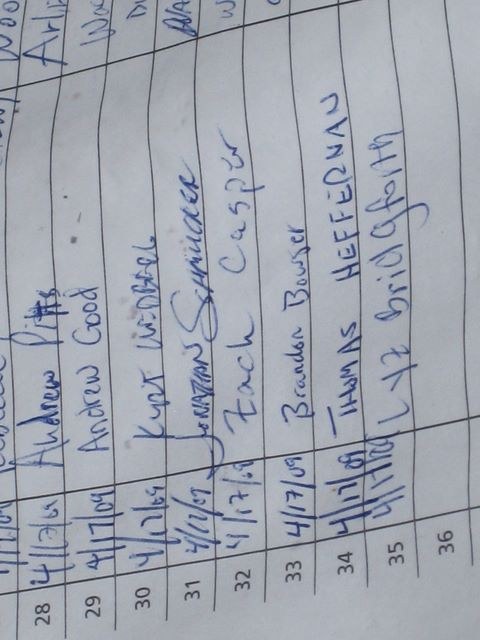 28 4/17/09 Andrew Pitts
29 4/17/09 Andrew Good
30 4/17/09 Kurt
31 4/17/09 Jonathan
32 4/17/09 Zach Casper
33 4/17/09 Brandon Bowser
34 4/17/09 THOMAS HEFFERNAN
35 4/17/09 Lyz Bridgforth
36